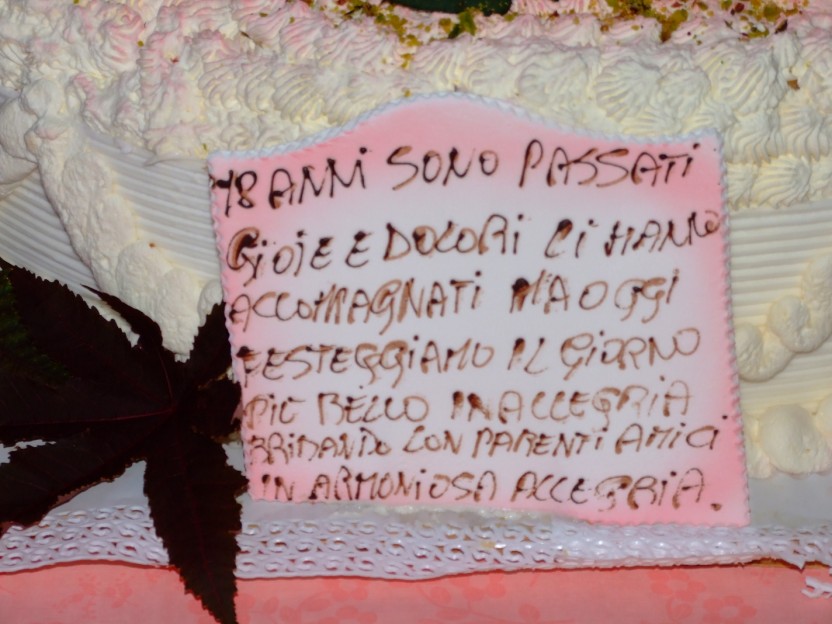 18 ANNI SONO PASSATI
GIOIE E DOLORI CI HANNO
ACCOMPAGNATI MA OGGI
FESTEGGIAMO IL GIORNO
PIU BELLO IN ALLEGRIA
BRIDANDO CON PARENTI AMICI
IN ARMONIOSA ALLEGRIA.